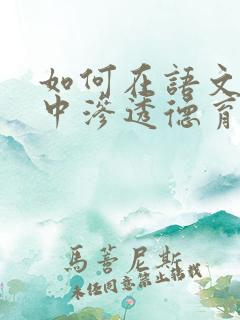 如何在語文
中滲透德育
馬蓍尼斯
未任同意禁止转载